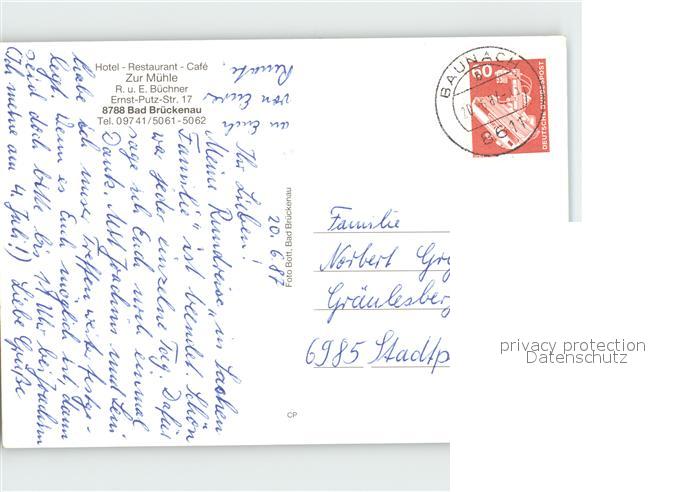 Hotel - Restaurant - Café
Zur Mühle
R. u. E. Büchner
Ernst-Putz-Str. 17
8788 Bad Brückenau
Tel. 09741/5061-5062
20.6.87
Ihr Lieben!
Meine Rundreise „in Sachen
Familie" ist beendet. Schön
war jeder einzelne Tag. Dafür
sage ich Euch noch einmal
Dank. Mit Joachim und
habe ich unser Treffen weiter festge-
legt. Wenn es Euch möglich ist, dann
seid doch bitte bis 11 Uhr bei Joachim
(Ich meine am 4. Juli!) Liebe Grüße
an Euch
von Eurer
Renate.
Foto Bott, Bad Brückenau
CP
BAUNACH
8617
60
DEUTSCHE BUNDESPOST
Familie
Norbert
Gräulesberg
6985 Stadtp
privacy protection
Datenschutz